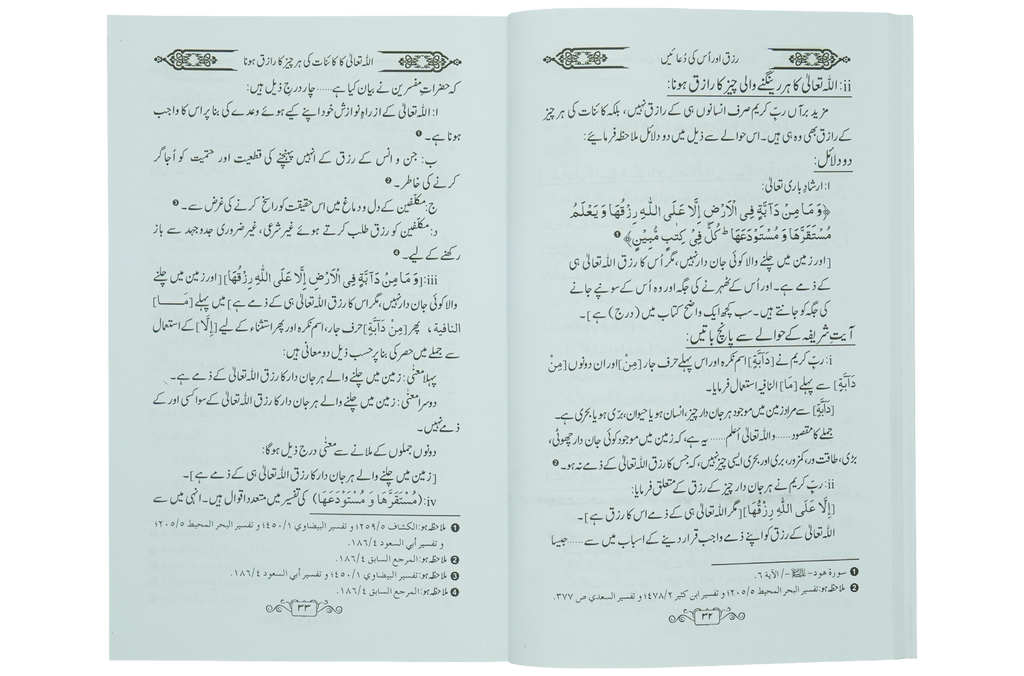 رزق اور اُس کی دُعائیں
ii: اللہ تعالیٰ کا ہر رینگنے والی چیز کا رازق ہونا:
مزید برآں ربّ کریم صرف انسانوں ہی کے رازق نہیں، بلکہ کائنات کی ہر چیز
کے رازق بھی وہ ہی ہیں۔ اس حوالے سے ذیل میں دو دلائل ملاحظہ فرمائیے:
دو دلائل:
ا: ارشادِ باری تعالیٰ:
﴿وَ مَا مِنْ دَآبَّةٍ فِی الْاَرْضِ اِلَّا عَلَی اللّٰهِ رِزْقُهَا وَ یَعْلَمُ
مُسْتَقَرَّهَا وَ مُسْتَوْدَعَهَا ؕ كُلٌّ فِیْ كِتٰبٍ مُّبِیْنٍ﴾ ❶
[اور زمین میں چلنے والا کوئی جان دار نہیں، مگر اُس کا رزق اللہ تعالیٰ ہی
کے ذمے ہے۔ اور اُس کے ٹھہرنے کی جگہ اور وہ اُس کے سونپے جانے
کی جگہ کو جانتے ہیں۔ سب کچھ ایک واضح کتاب میں (درج) ہے]۔
آیتِ شریفہ کے حوالے سے پانچ باتیں:
i: ربّ کریم نے [دَآبَّةٍ] اسم نکرہ اور اس پہلے حرف جار [مِنْ] اور ان دونوں [مِنْ
دَآبَّةٍ] سے پہلے [مَا] النافیہ استعمال فرمایا۔
[دَآبَّةٍ] سے مراد زمین میں موجود ہر جان دار چیز، انسان ہو یا حیوان، برّی ہو یا بحری ہے۔
جملے کا مقصود ..... واللہ تعالیٰ أعلم ..... یہ ہے، کہ زمین میں موجود کوئی جان دار چھوٹی،
بڑی، طاقت ور، کمزور، بری اور بحری ایسی چیز نہیں، کہ جس کا رزق اللہ تعالیٰ کے ذمے نہ ہو۔ ❷
ii: ربّ کریم نے ہر جان دار چیز کے رزق کے متعلق فرمایا:
[اِلَّا عَلَی اللّٰهِ رِزْقُهَا] [مگر اللہ تعالیٰ ہی کے ذمے اس کا رزق ہے]۔
اللہ تعالیٰ کے رزق کو اپنے ذمے واجب قرار دینے کے اسباب میں سے ..... جیسا
❶ سورة هود - ﷺ -/ الآية ٦.
❷ ملاحظہ ہو: تفسير البحر المحيط ٢٠٥/٥؛ و تفسير ابن كثير ٤٧٨/٢؛ و تفسير السعدي ص ٣٧٧.
٣٢
اللہ تعالیٰ کا کائنات کی ہر چیز کا رازق ہونا
کہ حضراتِ مفسرین نے بیان کیا ہے ..... چار درج ذیل ہیں:
ا: اللہ تعالیٰ کے ازراہِ نوازش خود اپنے کیے ہوئے وعدے کی بنا پر اس کا واجب
ہونا ہے۔ ❶
ب: جن و انس کے رزق کے انہیں پہنچنے کی قطعیت اور حتمیت کو اُجاگر
کرنے کی خاطر۔ ❷
ج: مکلّفین کے دل و دماغ میں اس حقیقت کو راسخ کرنے کی غرض سے۔ ❸
د: مکلّفین کو رزق طلب کرتے ہوئے غیر شرعی، غیر ضروری جدوجہد سے باز
رکھنے کے لیے۔ ❹
iii: [وَ مَا مِنْ دَآبَّةٍ فِی الْاَرْضِ اِلَّا عَلَی اللّٰهِ رِزْقُهَا] [اور زمین میں چلنے
والا کوئی جان دار نہیں، مگر اس کا رزق اللہ تعالیٰ ہی کے ذمے ہے] میں پہلے [مَـــا]
النافیة، پھر [مِنْ دَآبَّةٍ] حرف جار، اسم نکرہ اور پھر استثناء کے لیے [اِلَّا] کے استعمال
سے جملے میں حصر کی بنا پر حسب ذیل دو معانی ہیں:
پہلا معنی: زمین میں چلنے والے ہر جان دار کا رزق اللہ تعالیٰ کے ذمے ہے۔
دوسرا معنی: زمین میں چلنے والے ہر جان دار کا رزق اللہ تعالیٰ کے سوا کسی اور کے
ذمے نہیں۔
دونوں جملوں کے ملانے سے معنی درج ذیل ہوگا:
[زمین میں چلنے والے ہر جان دار کا رزق اللہ تعالیٰ ہی کے ذمے ہے]۔
iv: (مُسْتَقَرَّهَا وَ مُسْتَوْدَعَهَا) کی تفسیر میں متعدد اقوال ہیں۔ انہی میں سے
❶ ملاحظہ ہو: الكشاف ٢٥٩/٥؛ و تفسير البيضاوي ٤٥٠/١؛ و تفسير البحر المحيط ٢٠٥/٥؛
و تفسير أبي السعود ١٨٦/٤.
❷ ملاحظہ ہو: المرجع السابق ١٨٦/٤.
❸ ملاحظہ ہو: تفسير البيضاوي ٤٥٠/١؛ و تفسير أبي السعود ١٨٦/٤.
❹ ملاحظہ ہو: المرجع السابق ١٨٦/٤.
٣٣